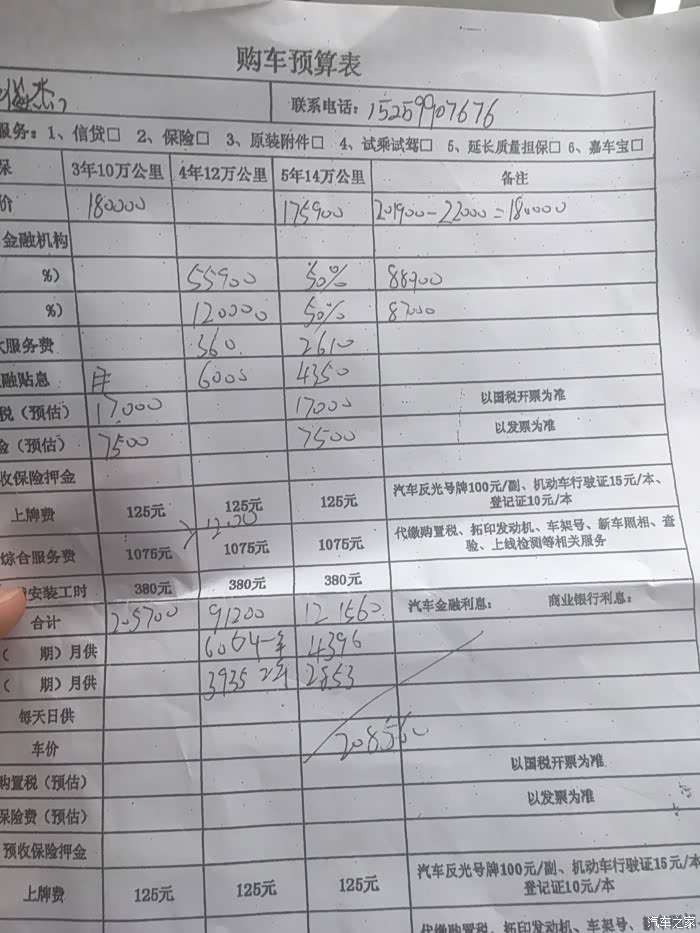 购车预算表
联系电话：15259907676
服务：1、信贷□ 2、保险□ 3、原装附件□ 4、试乘试驾□ 5、延长质量担保□ 6、嘉车宝□
保 3年10万公里 4年12万公里 5年14万公里 备注
价 180000 175900 201900-22000=180000
金融机构
%） 55900 50% 88900
%） 120000 50% 87000
服务费 360 2610
融贴息 6000 4350
税（预估） 17000 17000 以国税开票为准
险（预估） 7500 7500 以发票为准
收保险押金
上牌费 125元 125元 125元 汽车反光号牌100元/副、机动车行驶证15元/本、
登记证10元/本
综合服务费 1075元 1075元 1075元 代缴购置税、拓印发动机、车架号、新车照相、查
验、上线检测等相关服务
安装工时 380元 380元 380元
合计 205700 91200 121560 汽车金融利息： 商业银行利息：
（ 期）月供 6064 4396
（ 期）月供 3935 2853
每天日供
车价 208560
购置税（预估） 以国税开票为准
保险费（预估） 以发票为准
预收保险押金
上牌费 125元 125元 125元 汽车反光号牌100元/副、机动车行驶证15元/本、
登记证10元/本
代缴购置税、拓印发动机、车架号、新
汽车之家